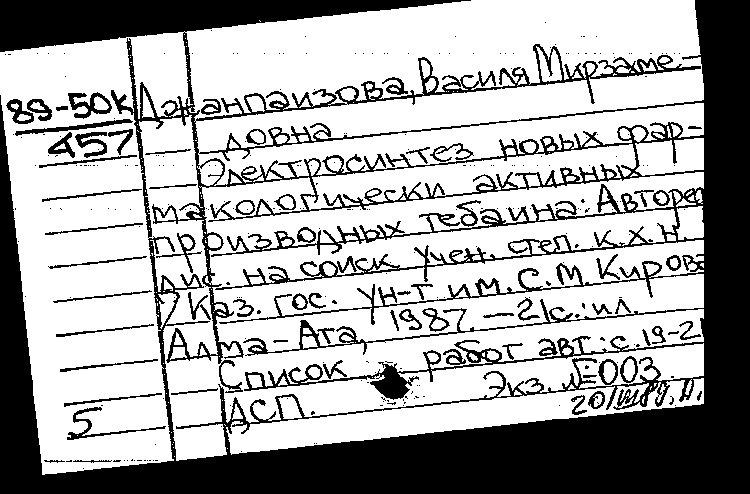 89-50к Джанпаизова, Василя Мирзаме-
457 довна.
Электросинтез новых фар-
макологически активных
производных тебаина: Авторе
дис. на соиск учен. степ. к.х.н.
/ Каз. гос. ун-т им. С.М. Кирова
Алма-Ата, 1987. — 21с.: ил.
Список работ авт.: с. 19-21
Экз. №003
5 ДСП.
20/III 89.